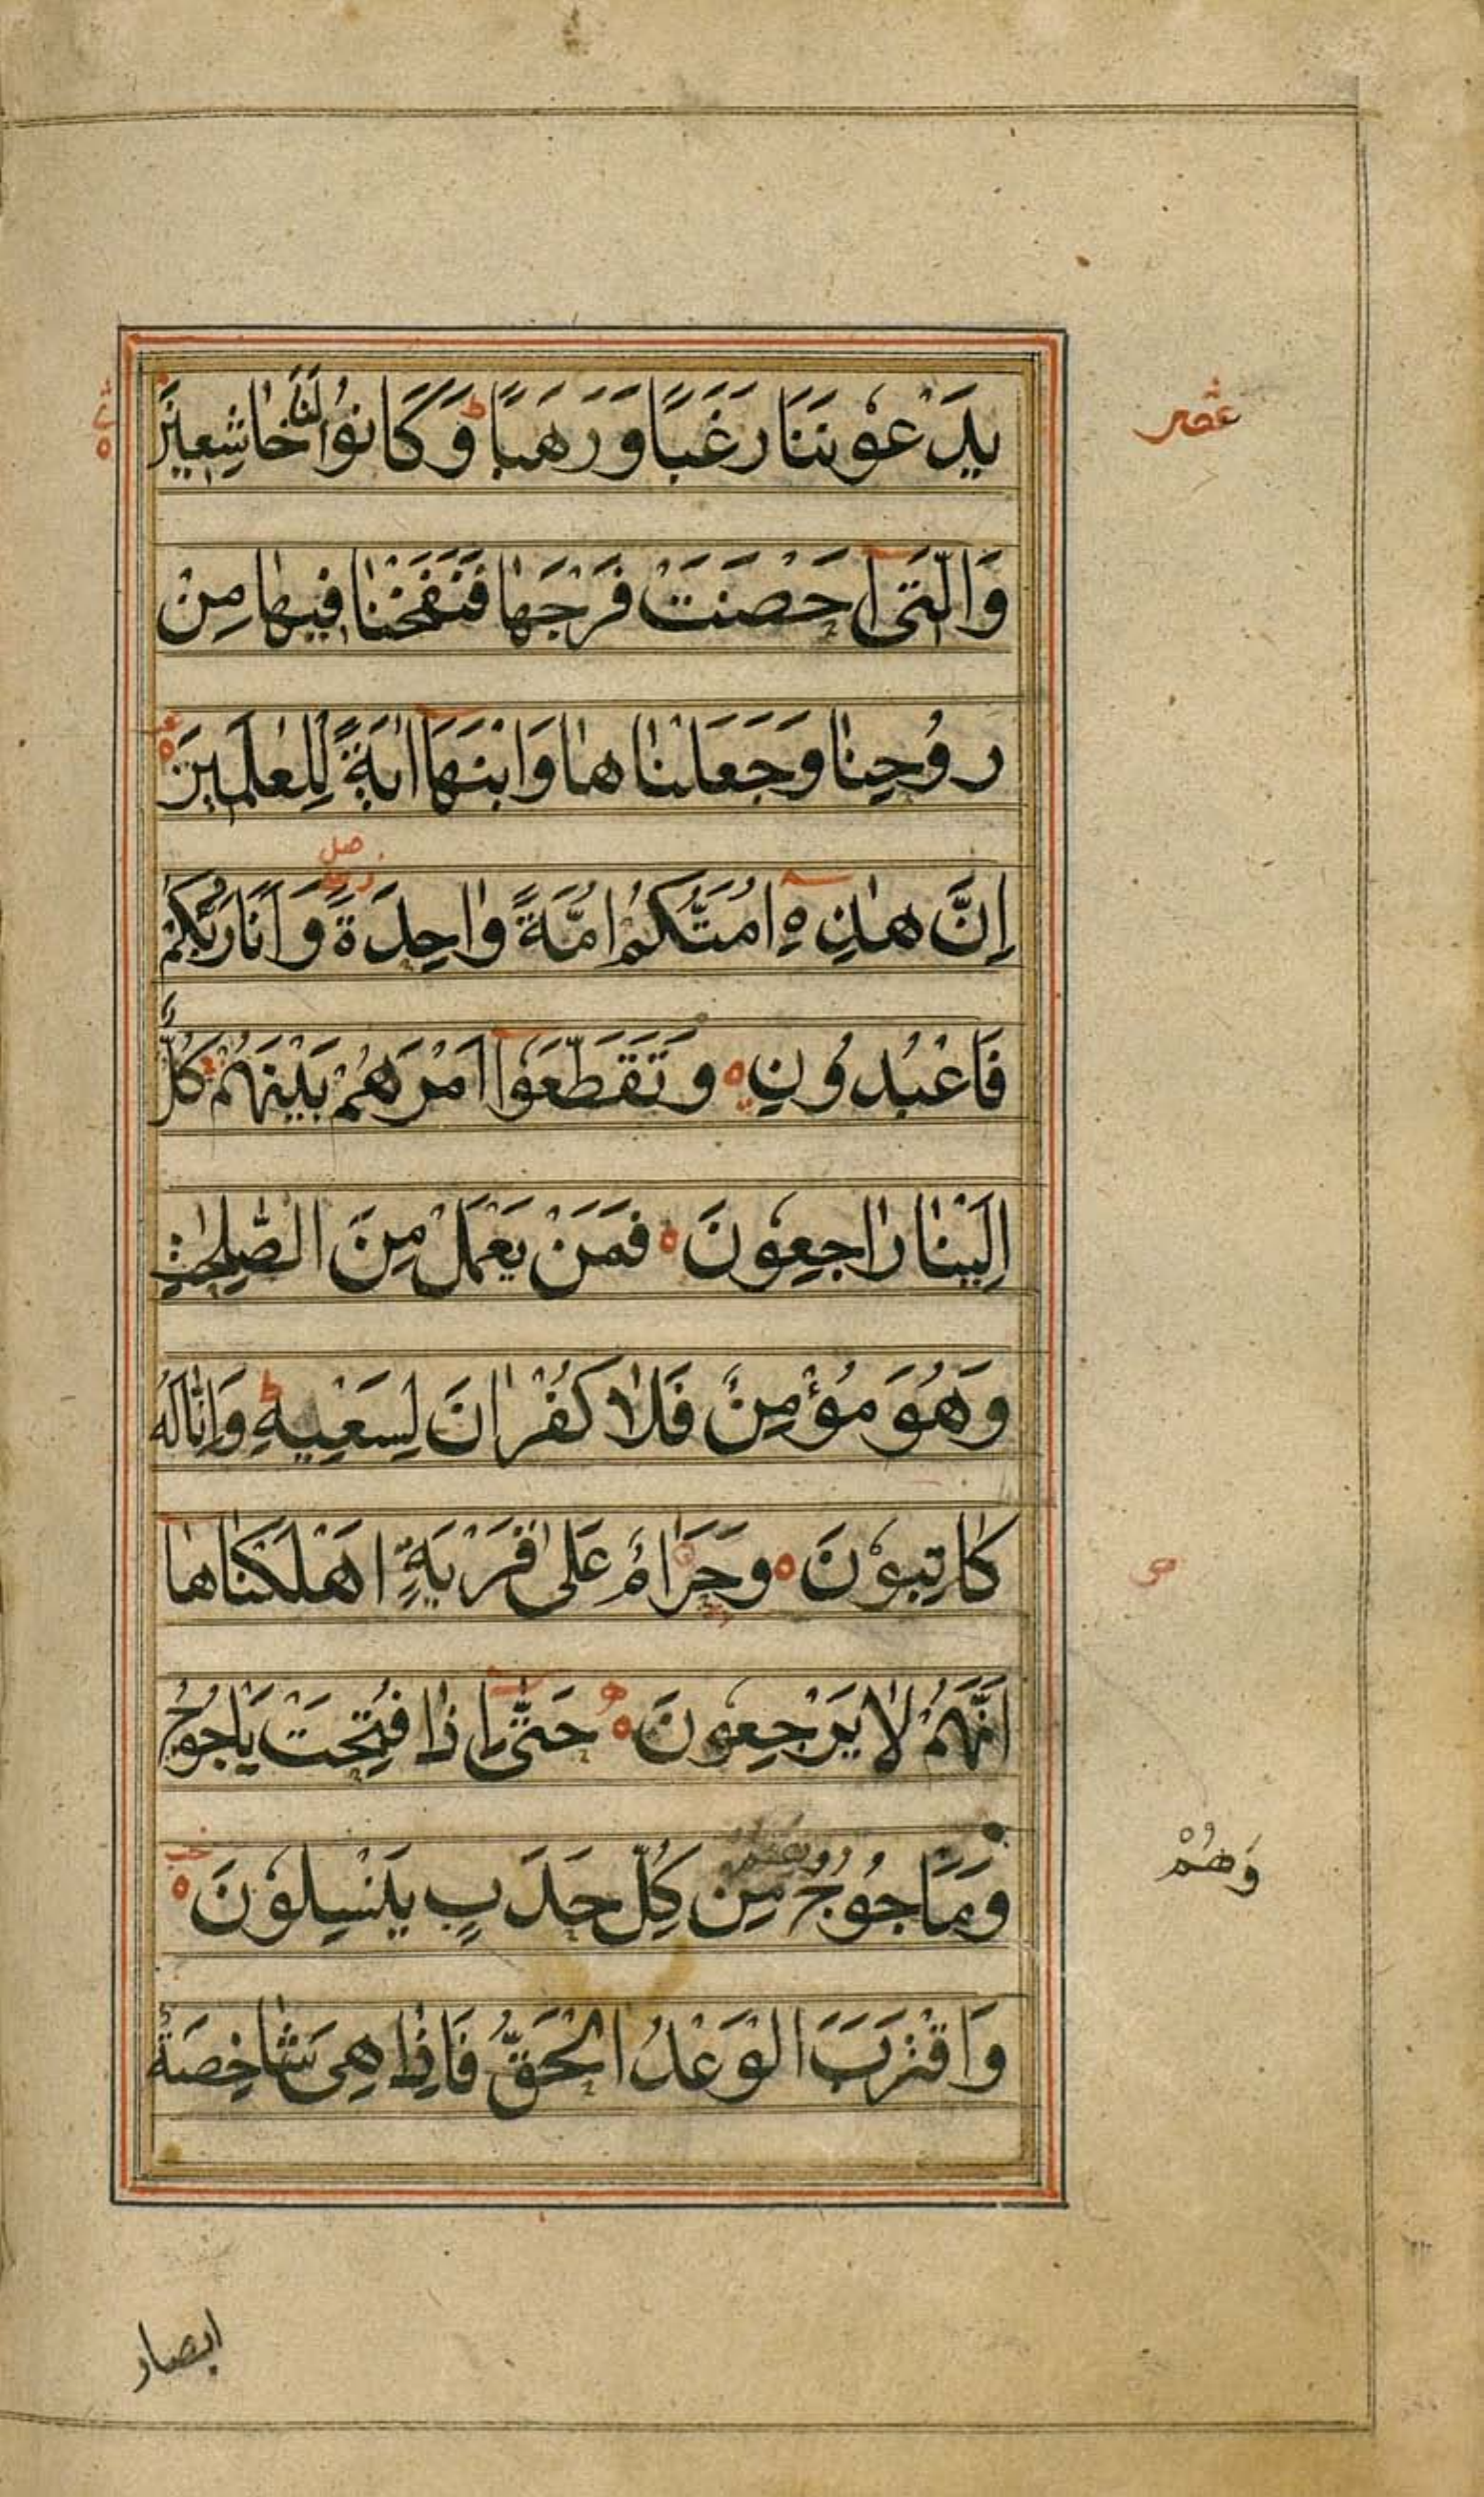 يَدْعُوْنَنَا رَغَبًا وَرَهَبًا ط وَكَانُوْا لَنَا خَاشِعِيْنَ
وَالَّتِىْ اَحْصَنَتْ فَرْجَهَا فَنَفَخْنَا فِيْهَا مِنْ
رُوْحِنَا وَجَعَلْنَاهَا وَابْنَهَا اٰيَةً لِلْعٰلَمِيْنَ
اِنَّ هٰذِهٖ اُمَّتُكُمْ اُمَّةً وَاحِدَةً وَاَنَا رَبُّكُمْ
فَاعْبُدُوْنِ ه وَتَقَطَّعُوْا اَمْرَهُمْ بَيْنَهُمْ كُلٌّ
اِلَيْنَا رَاجِعُوْنَ ه فَمَنْ يَعْمَلْ مِنَ الصّٰلِحٰتِ
وَهُوَ مُؤْمِنٌ فَلَا كُفْرَانَ لِسَعْيِهٖ ط وَاِنَّا لَهُ
كَاتِبُوْنَ ه وَحَرَامٌ عَلٰى قَرْيَةٍ اَهْلَكْنَاهَا
اَنَّهُمْ لَا يَرْجِعُوْنَ ه حَتّٰى اِذَا فُتِحَتْ يَاجُوْجُ
وَمَاجُوْجُ مِنْ كُلِّ حَدَبٍ يَنْسِلُوْنَ ه
وَاقْتَرَبَ الْوَعْدُ الْحَقُّ فَاِذَا هِىَ شَاخِصَةٌ
وَهُمْ
ابصار